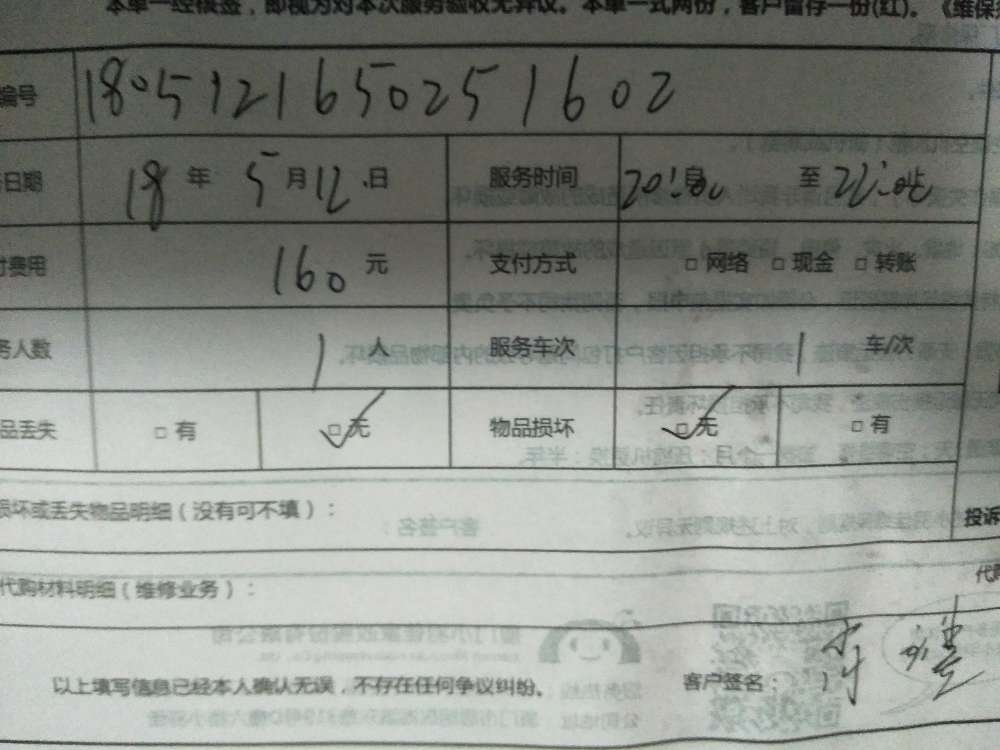 本单一经核签，即视为对本次服务验收无异议。本单一式两份，客户留存一份(红)。《维保
编号 180512165025 1602
日期 18 年 5 月 12 日 服务时间 20: 至 22:
费用 160 元 支付方式 □ 网络 □ 现金 □ 转账
务人数 1 人 服务车次 1 车/次
品丢失 □ 有 □ 无 物品损坏 □ 无 □ 有
损坏或丢失物品明细（没有可不填）：
投诉
代购材料明细（维修业务）：
代
以上填写信息已经本人确认无误，不存在任何争议纠纷。 客户签名：